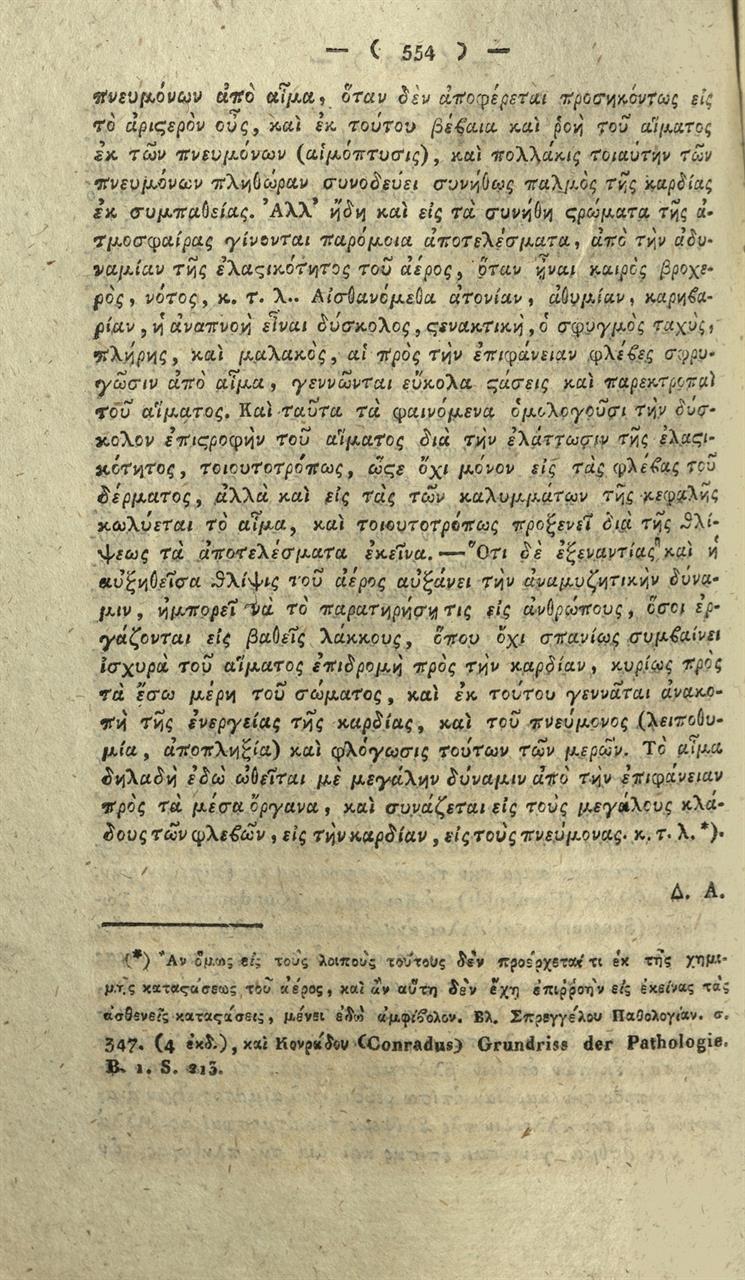 — ( 554 ) —
πνευμόνων ἀπὸ αἷμα, ὅταν δὲν ἀποφέρεται προσηκόντως εἰς
τὸ ἀριϛερὸν οὖς, καὶ ἐκ τούτου βέβαια καὶ ῥοὴ τοῦ αἵματος
ἐκ τῶν πνευμόνων (αἱμόπτυσις), καὶ πολλάκις τοιαύτην τῶν
πνευμόνων πληθώραν συνοδεύει συνήθως παλμὸς τῆς καρδίας
ἐκ συμπαθείας. Ἀλλ' ἤδη καὶ εἰς τὰ συνήθη ϛρώματα τῆς ἀ-
τμοσφαίρας γίνονται παρόμοια ἀποτελέσματα, ἀπὸ τὴν ἀδυ-
ναμίαν τῆς ἐλαϛικότητος τοῦ ἀέρος, ὅταν ἦναι καιρὸς βροχε-
ρὸς, νότος, κ. τ. λ.. Αἰσθανόμεθα ἀτονίαν, ἀθυμίαν, καρηβα-
ρίαν, ἡ ἀναπνοὴ εἶναι δύσκολος, ϛενακτικὴ, ὁ σφυγμὸς ταχὺς,
πλήρης, καὶ μαλακὸς, αἱ πρὸς τὴν ἐπιφάνειαν φλέβες σφρι-
γῶσιν ἀπὸ αἷμα, γεννῶνται εὔκολα ϛάσεις καὶ παρεκτροπαὶ
τοῦ αἵματος. Καὶ ταῦτα τὰ φαινόμενα ὁμολογοῦσι τὴν δύσ-
κολον ἐπιϛροφὴν τοῦ αἵματος διὰ τὴν ἐλάττωσιν τῆς ἐλαϛι-
κότητος, τοιουτοτρόπως, ὥϛε ὄχι μόνον εἰς τὰς φλέβας τοῦ
δέρματος, ἀλλὰ καὶ εἰς τὰς τῶν καλυμμάτων τῆς κεφαλῆς
κωλύεται τὸ αἷμα, καὶ τοιουτοτρόπως προξενεῖ διὰ τῆς θλί-
ψεως τὰ ἀποτελέσματα ἐκεῖνα. — Ὅτι δὲ ἐξεναντίας καὶ ἡ
αὐξηθεῖσα θλίψις τοῦ ἀέρος αὐξάνει τὴν ἀναμυζητικὴν δύνα-
μιν, ἠμπορεῖ νὰ τὸ παρατηρήσῃ τις εἰς ἀνθρώπους, ὅσοι ἐρ-
γάζονται εἰς βαθεῖς λάκκους, ὅπου ὄχι σπανίως συμβαίνει
ἰσχυρὰ τοῦ αἵματος ἐπιδρομὴ πρὸς τὴν καρδίαν, κυρίως πρὸς
τὰ ἔσω μέρη τοῦ σώματος, καὶ ἐκ τούτου γεννᾶται ἀνακο-
πὴ τῆς ἐνεργείας τῆς καρδίας, καὶ τοῦ πνεύμονος (λειποθυ-
μία, ἀποπληξία) καὶ φλόγωσις τούτων τῶν μερῶν. Τὸ αἷμα
δηλαδὴ ἐδὼ ὠθεῖται μὲ μεγάλην δύναμιν ἀπὸ τὴν ἐπιφάνειαν
πρὸς τὰ μέσα ὄργανα, καὶ συνάζεται εἰς τοὺς μεγάλους κλά-
δους τῶν φλεβῶν, εἰς τὴν καρδίαν, εἰς τοὺς πνεύμονας. κ. τ. λ. *).
Δ. Α.
(*) Ἂν ὅμως εἰς τοὺς λοιποὺς τούτους δὲν προέρχεται τι ἐκ τῆς χημι-
μῆς καταϛάσεως τοῦ ἀέρος, καὶ ἂν αὕτη δὲν ἔχῃ ἐπιῤῥοὴν εἰς ἐκείνας τὰς
ἀσθενεῖς καταϛάσεις, μένει ἐδὼ ἀμφίβολον. Βλ. Σπρεγγέλου Παθολογίαν. σ.
347. (4 ἐκδ.), καὶ Κονράδου (Conradus) Grundriss der Pathologie.
B. 1. S. 213.